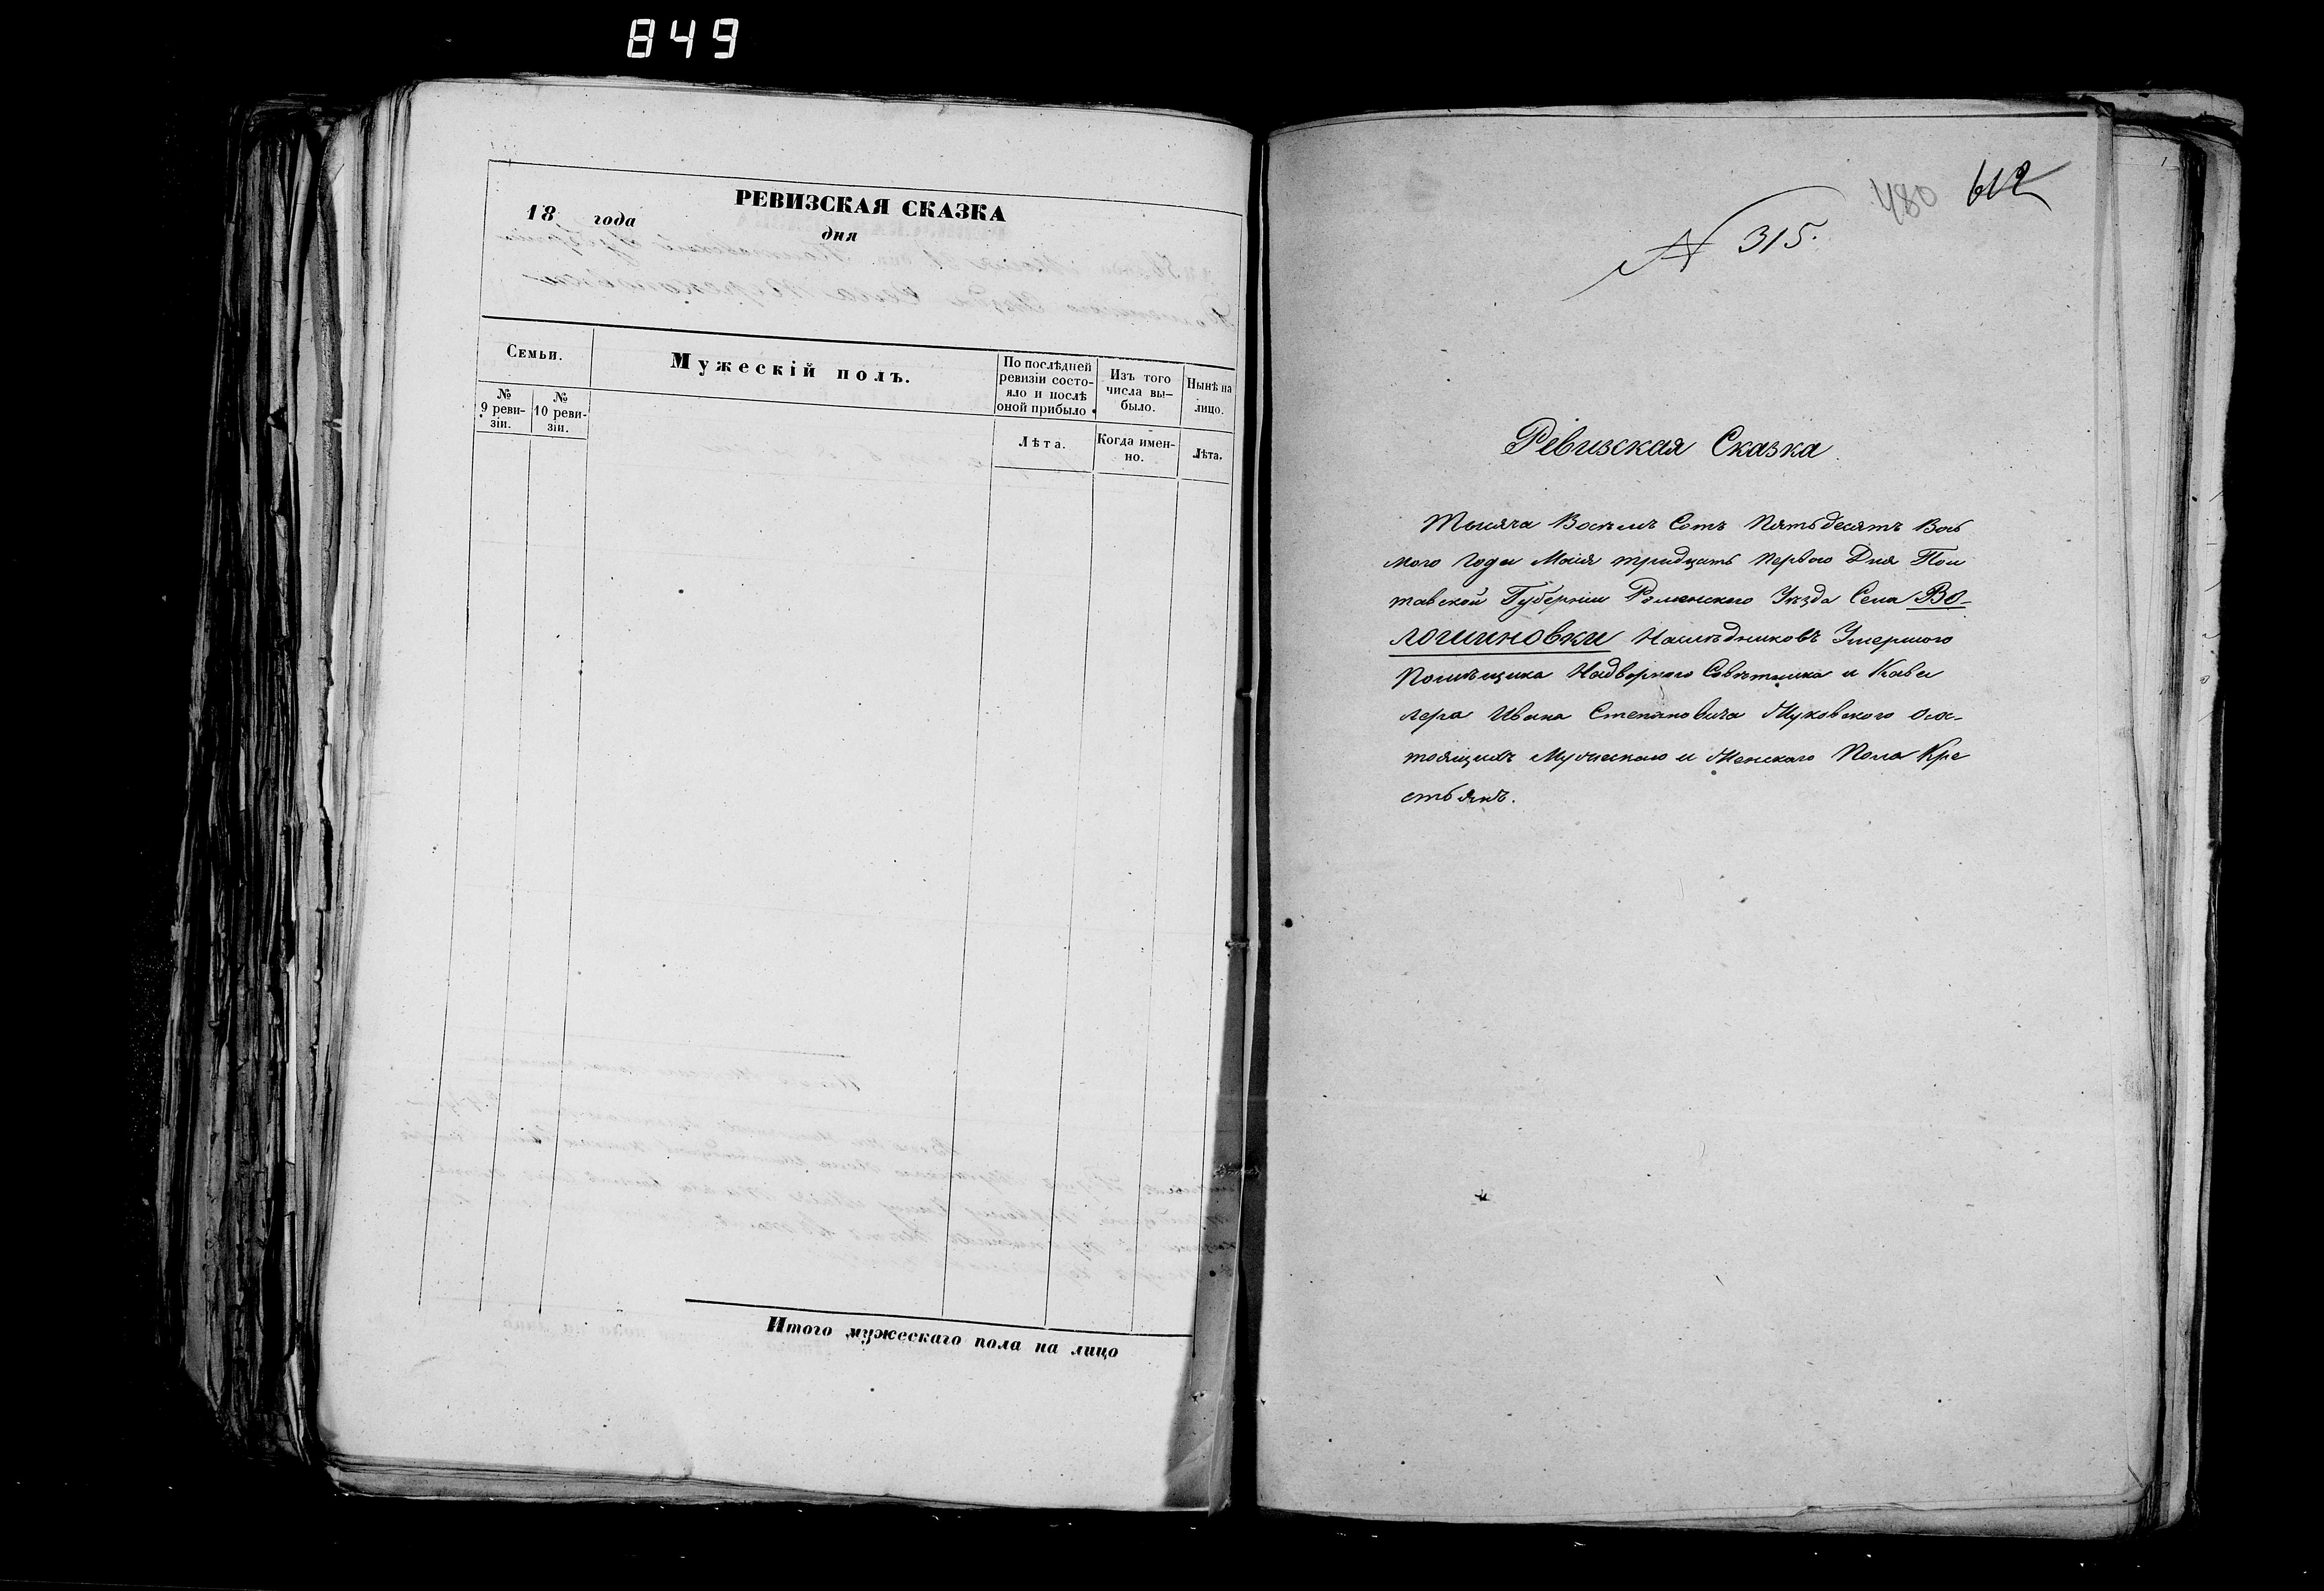 849
РЕВИЗСКАЯ СКАЗКА
18 года дня
Семьи.
Мужескій полъ.
По послѣдней ревизіи состояло и послѣ оной прибыло
Изъ того числа вы–было.
Нынѣ на лицо.
№ 9 реви-зіи.
№ 10 реви-зіи.
Лѣта.
Когда имен-но.
Лѣта.
Итого мужескаго пола на лицо
480 612
№ 315.
Ревизская Сказка
Тысяча Восемъ Сотъ Пятьдесятъ Вось
мого Года Маія тридцать Первого Дня Пол
тавской Губерніи Роменского Уѣзда Села Во-
лошиновки Наслѣдниковъ Умершого
Помѣщика Надворного Совѣтника и Кава
лера Ивана Степановича
тоящихъ Мужескаго и Женскаго Пола Кре
стьянъ.